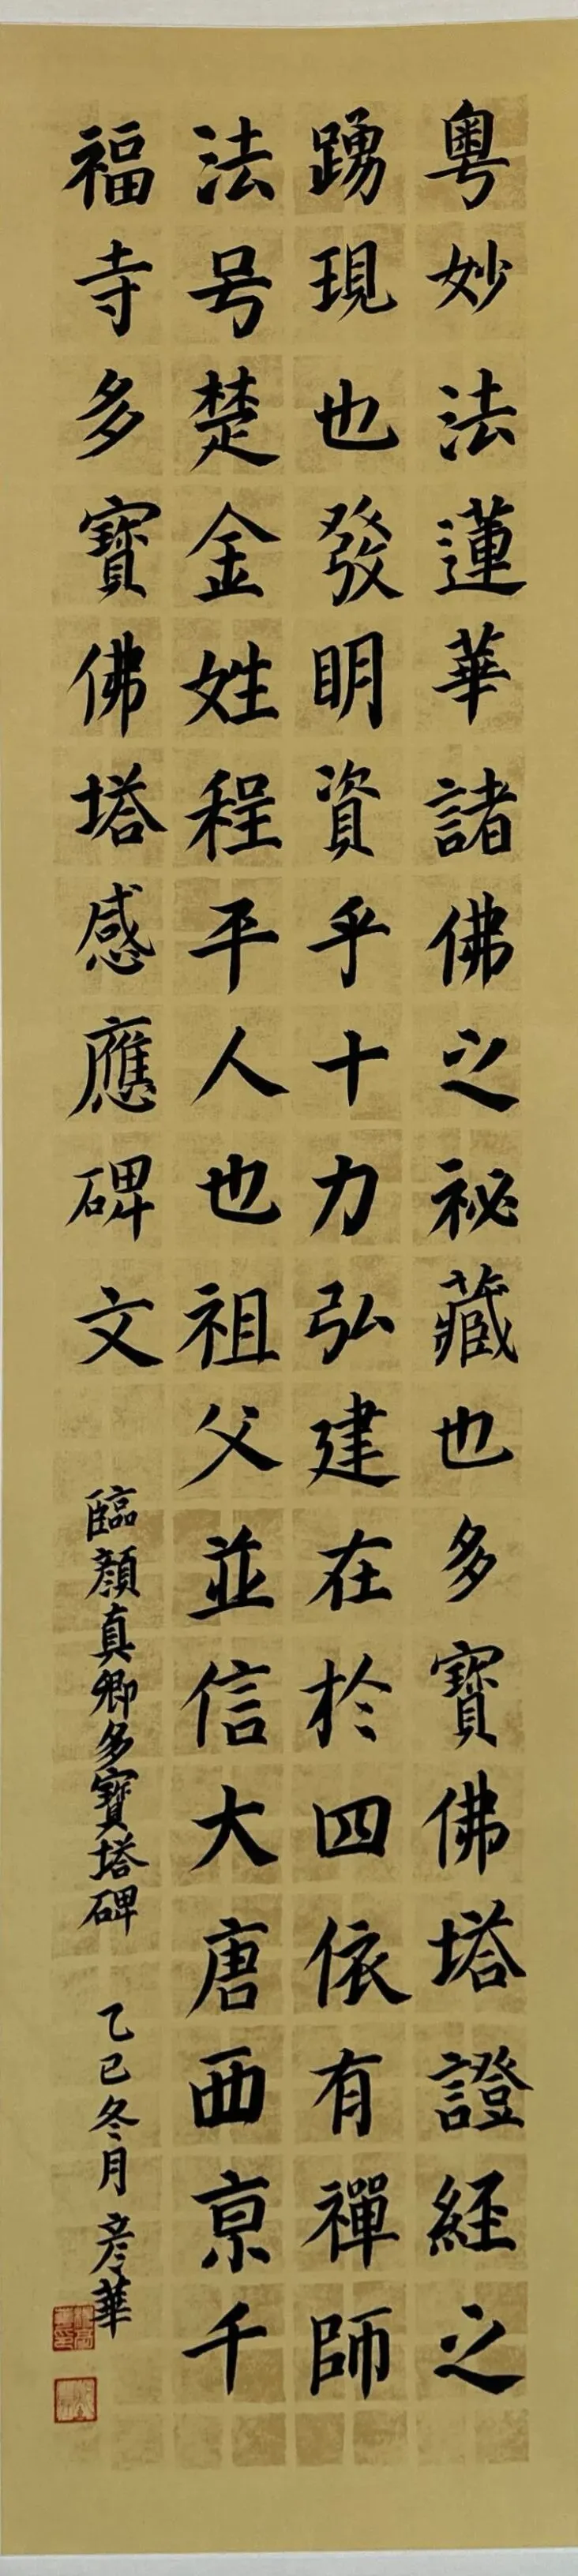 粤妙法蓮華諸佛之祕藏也多寶佛塔證経之
踴現也發明資乎十力弘建在於四依有禪師
法号楚金姓程平人也祖父並信大唐西京千
福寺多寶佛塔感應碑文
臨顏真卿多寶塔碑
乙巳冬月彦華